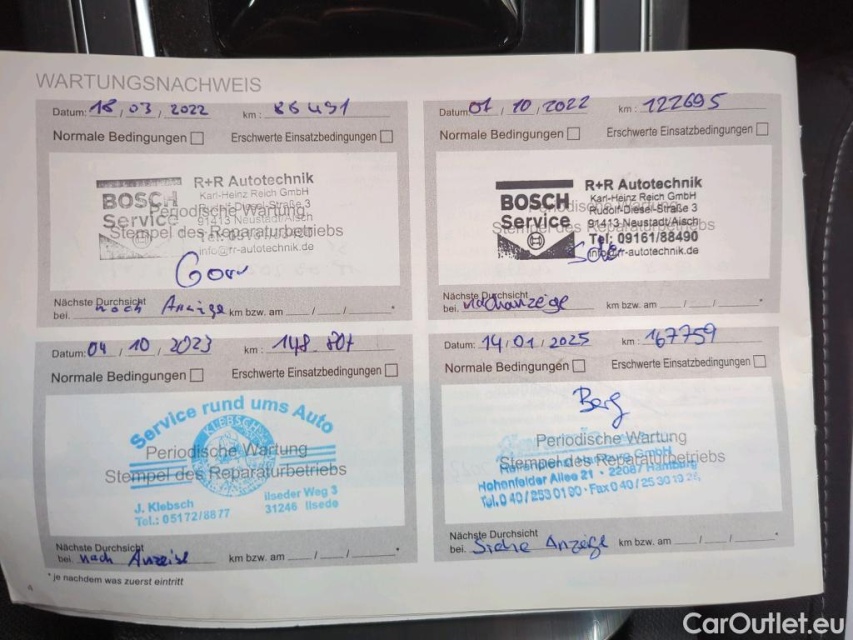 WARTUNGSNACHWEIS
Datum: 18 / 03 / 2022 km: 86491
Normale Bedingungen Erschwerte Einsatzbedingungen
BOSCH
Service
R+R Autotechnik
Karl-Heinz Reich GmbH
Rudolf-Diesel-Straße 3
91413 Neustadt/Aisch
info@rr-autotechnik.de
Periodische Wartung
Stempel des Reparaturbetriebs
Nächste Durchsicht
bei: nach Anzeige km bzw. am __/__/__*
Datum: 01 / 10 / 2022 km: 122695
Normale Bedingungen Erschwerte Einsatzbedingungen
BOSCH
Service
R+R Autotechnik
Karl-Heinz Reich GmbH
Rudolf-Diesel-Straße 3
91413 Neustadt/Aisch
Tel: 09161/88490
info@rr-autotechnik.de
Stempel des Reparaturbetriebs
Nächste Durchsicht
bei: nach anzeige km bzw. am __/__/__*
Datum: 04 / 10 / 2023 km: 148
Normale Bedingungen Erschwerte Einsatzbedingungen
Service rund ums Auto
KLEBSCH
Periodische Wartung
Stempel des Reparaturbetriebs
J. Klebsch
Tel.: 05172/8877
Ilseder Weg 3
31246 Ilsede
Nächste Durchsicht
bei: nach Anzeige km bzw. am __/__/__*
* je nachdem was zuerst eintritt
Datum: 14 / 01 / 2025 km: 167759
Normale Bedingungen Erschwerte Einsatzbedingungen
Berg
Periodische Wartung
Stempel des Reparaturbetriebs
Hohenfelder Allee 21 · 22087 Hamburg
Tel. 0 40 / 253 01 90 · Fax 0 40 / 25 30 19 26
Nächste Durchsicht
bei: Siehe Anzeige km bzw. am __/__/__*
CarOutlet.eu